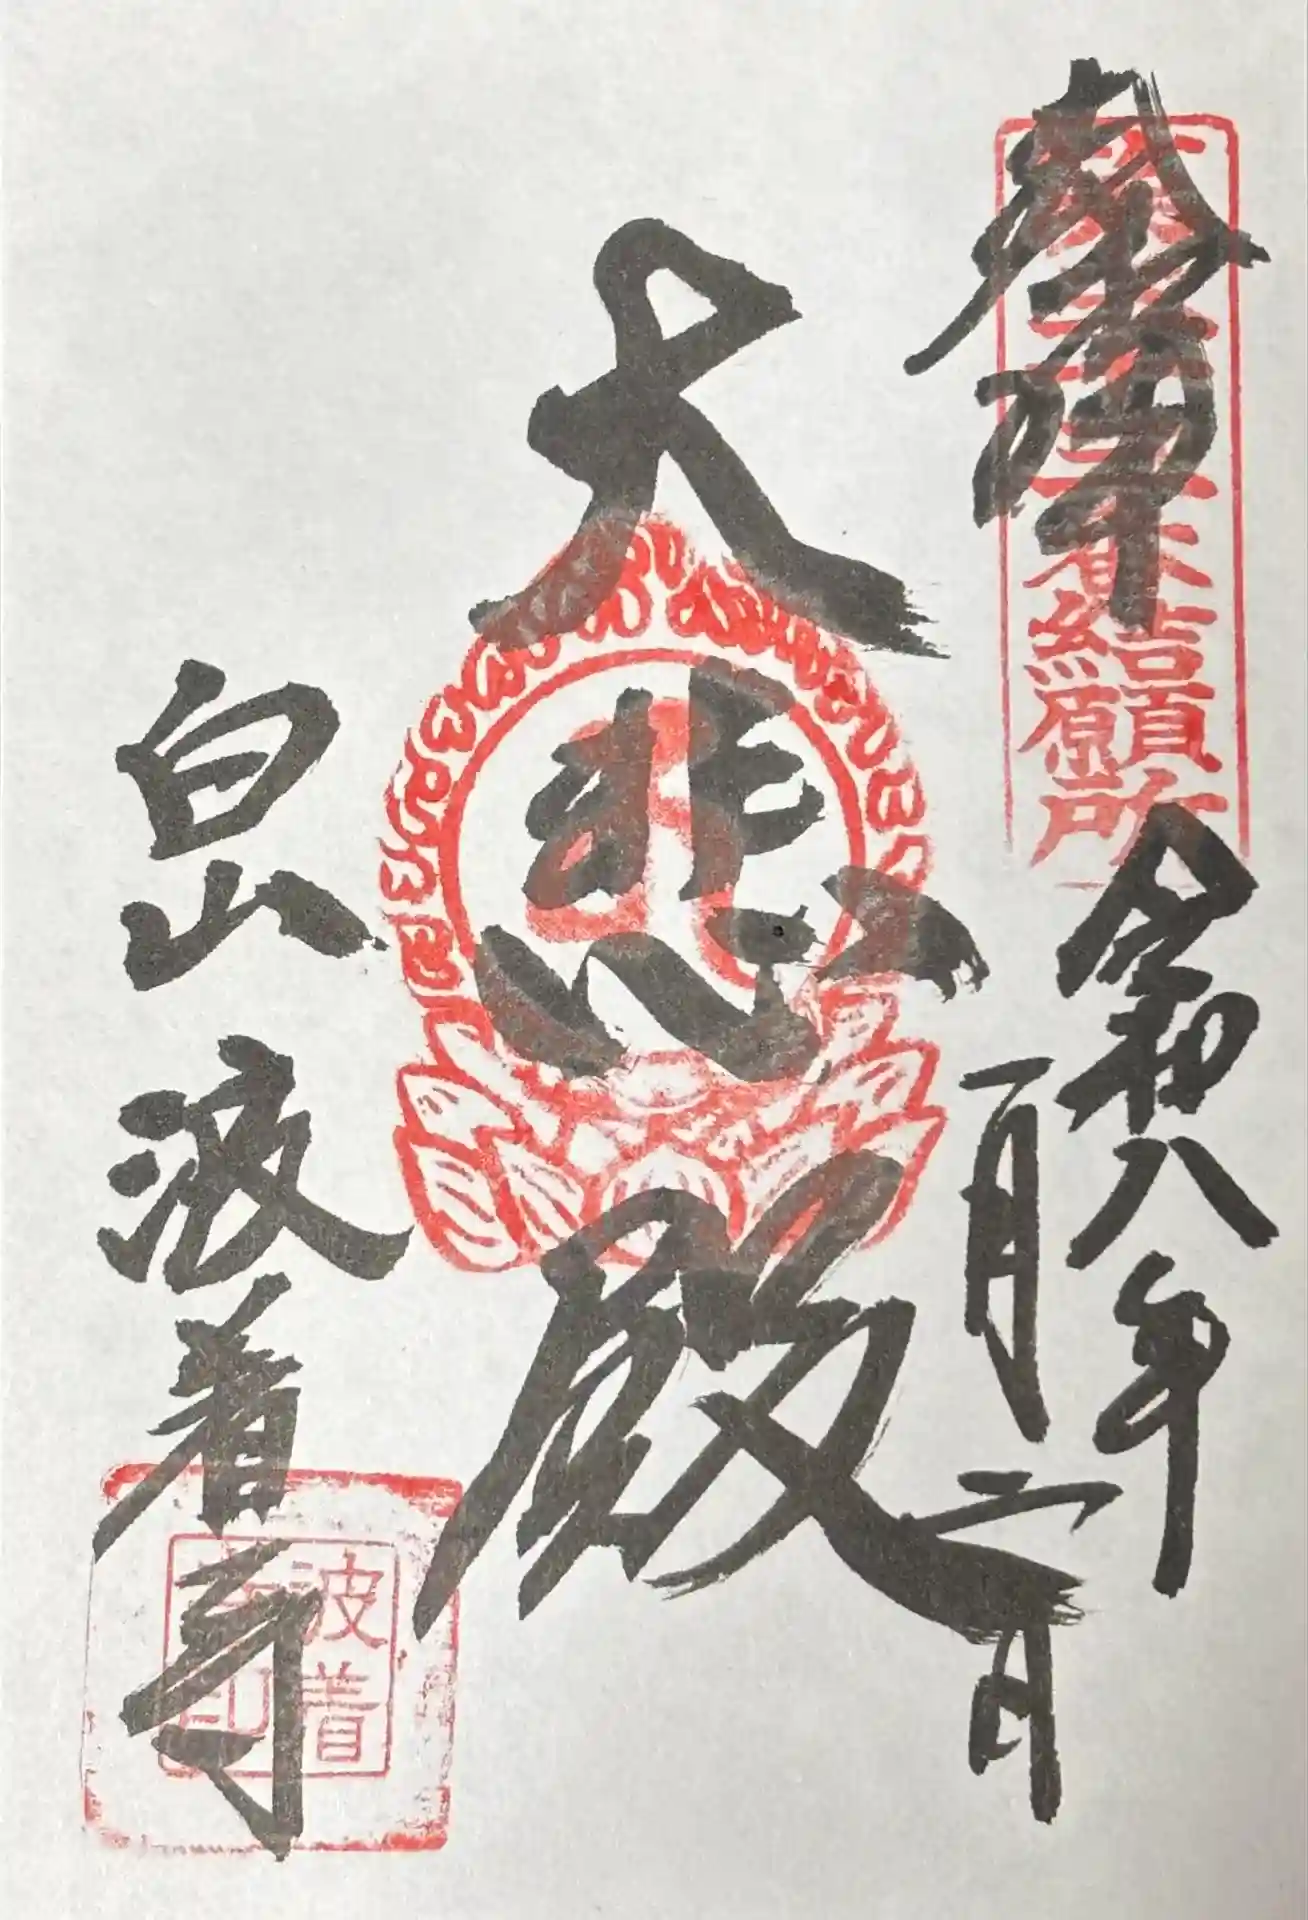 奉拝
結願所
令和八年
一月二日
大悲殿
白山波着寺
波着
寺印